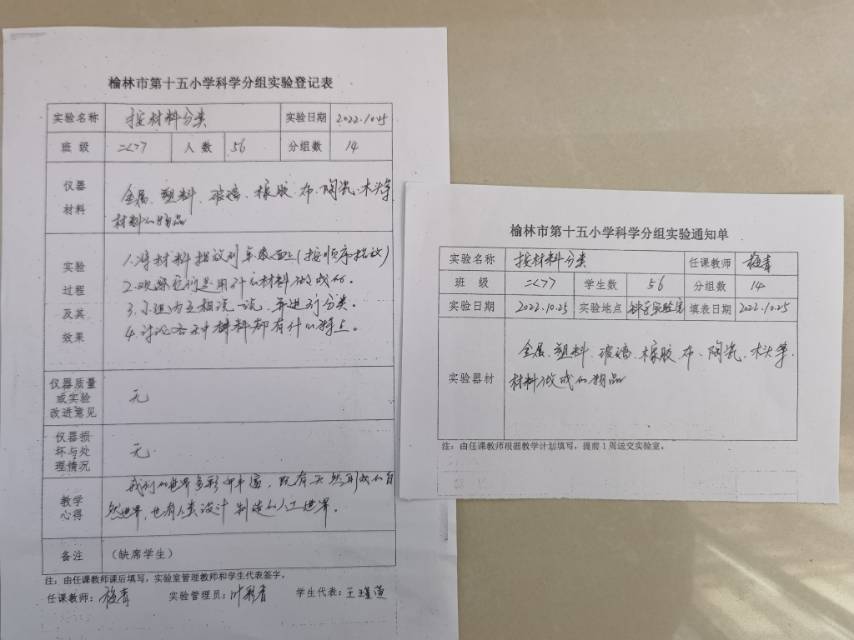 榆林市第十五小学科学分组实验登记表
实验名称 按材料分类 实验日期 2022.10.25
班 级 二<7> 人 数 56 分组数 14
仪器
材料
金属、塑料、玻璃、橡胶、布、陶瓷、木头等
材料的物品
实验
过程
及其
效果
1.将材料摆放到桌面上(按顺序摆放)
2.观察它们是用什么材料做成的。
3.小组内互相说一说,并进行分类。
4.讨论各种材料都有什么特点。
仪器质量
或实验
改进意见
无
仪器损
坏与处
理情况
无
教学
心得
我们的世界多彩而丰富,既有天然形成的自
然世界,也有人类设计制造的人工世界。
备注 (缺席学生)
注:由任课教师课后填写,实验室管理教师和学生代表签字。
任课教师: 实验管理员: 学生代表:王
榆林市第十五小学科学分组实验通知单
实验名称 按材料分类 任课教师
班 级 二<7> 学生数 56 分组数 14
实验日期 2022.10.25 实验地点 科学实验室 填表日期 2022.10.25
实验器材
金属、塑料、玻璃、橡胶、布、陶瓷、木头等
材料做成的物品
注:由任课教师根据教学计划填写,提前1周送交实验室。